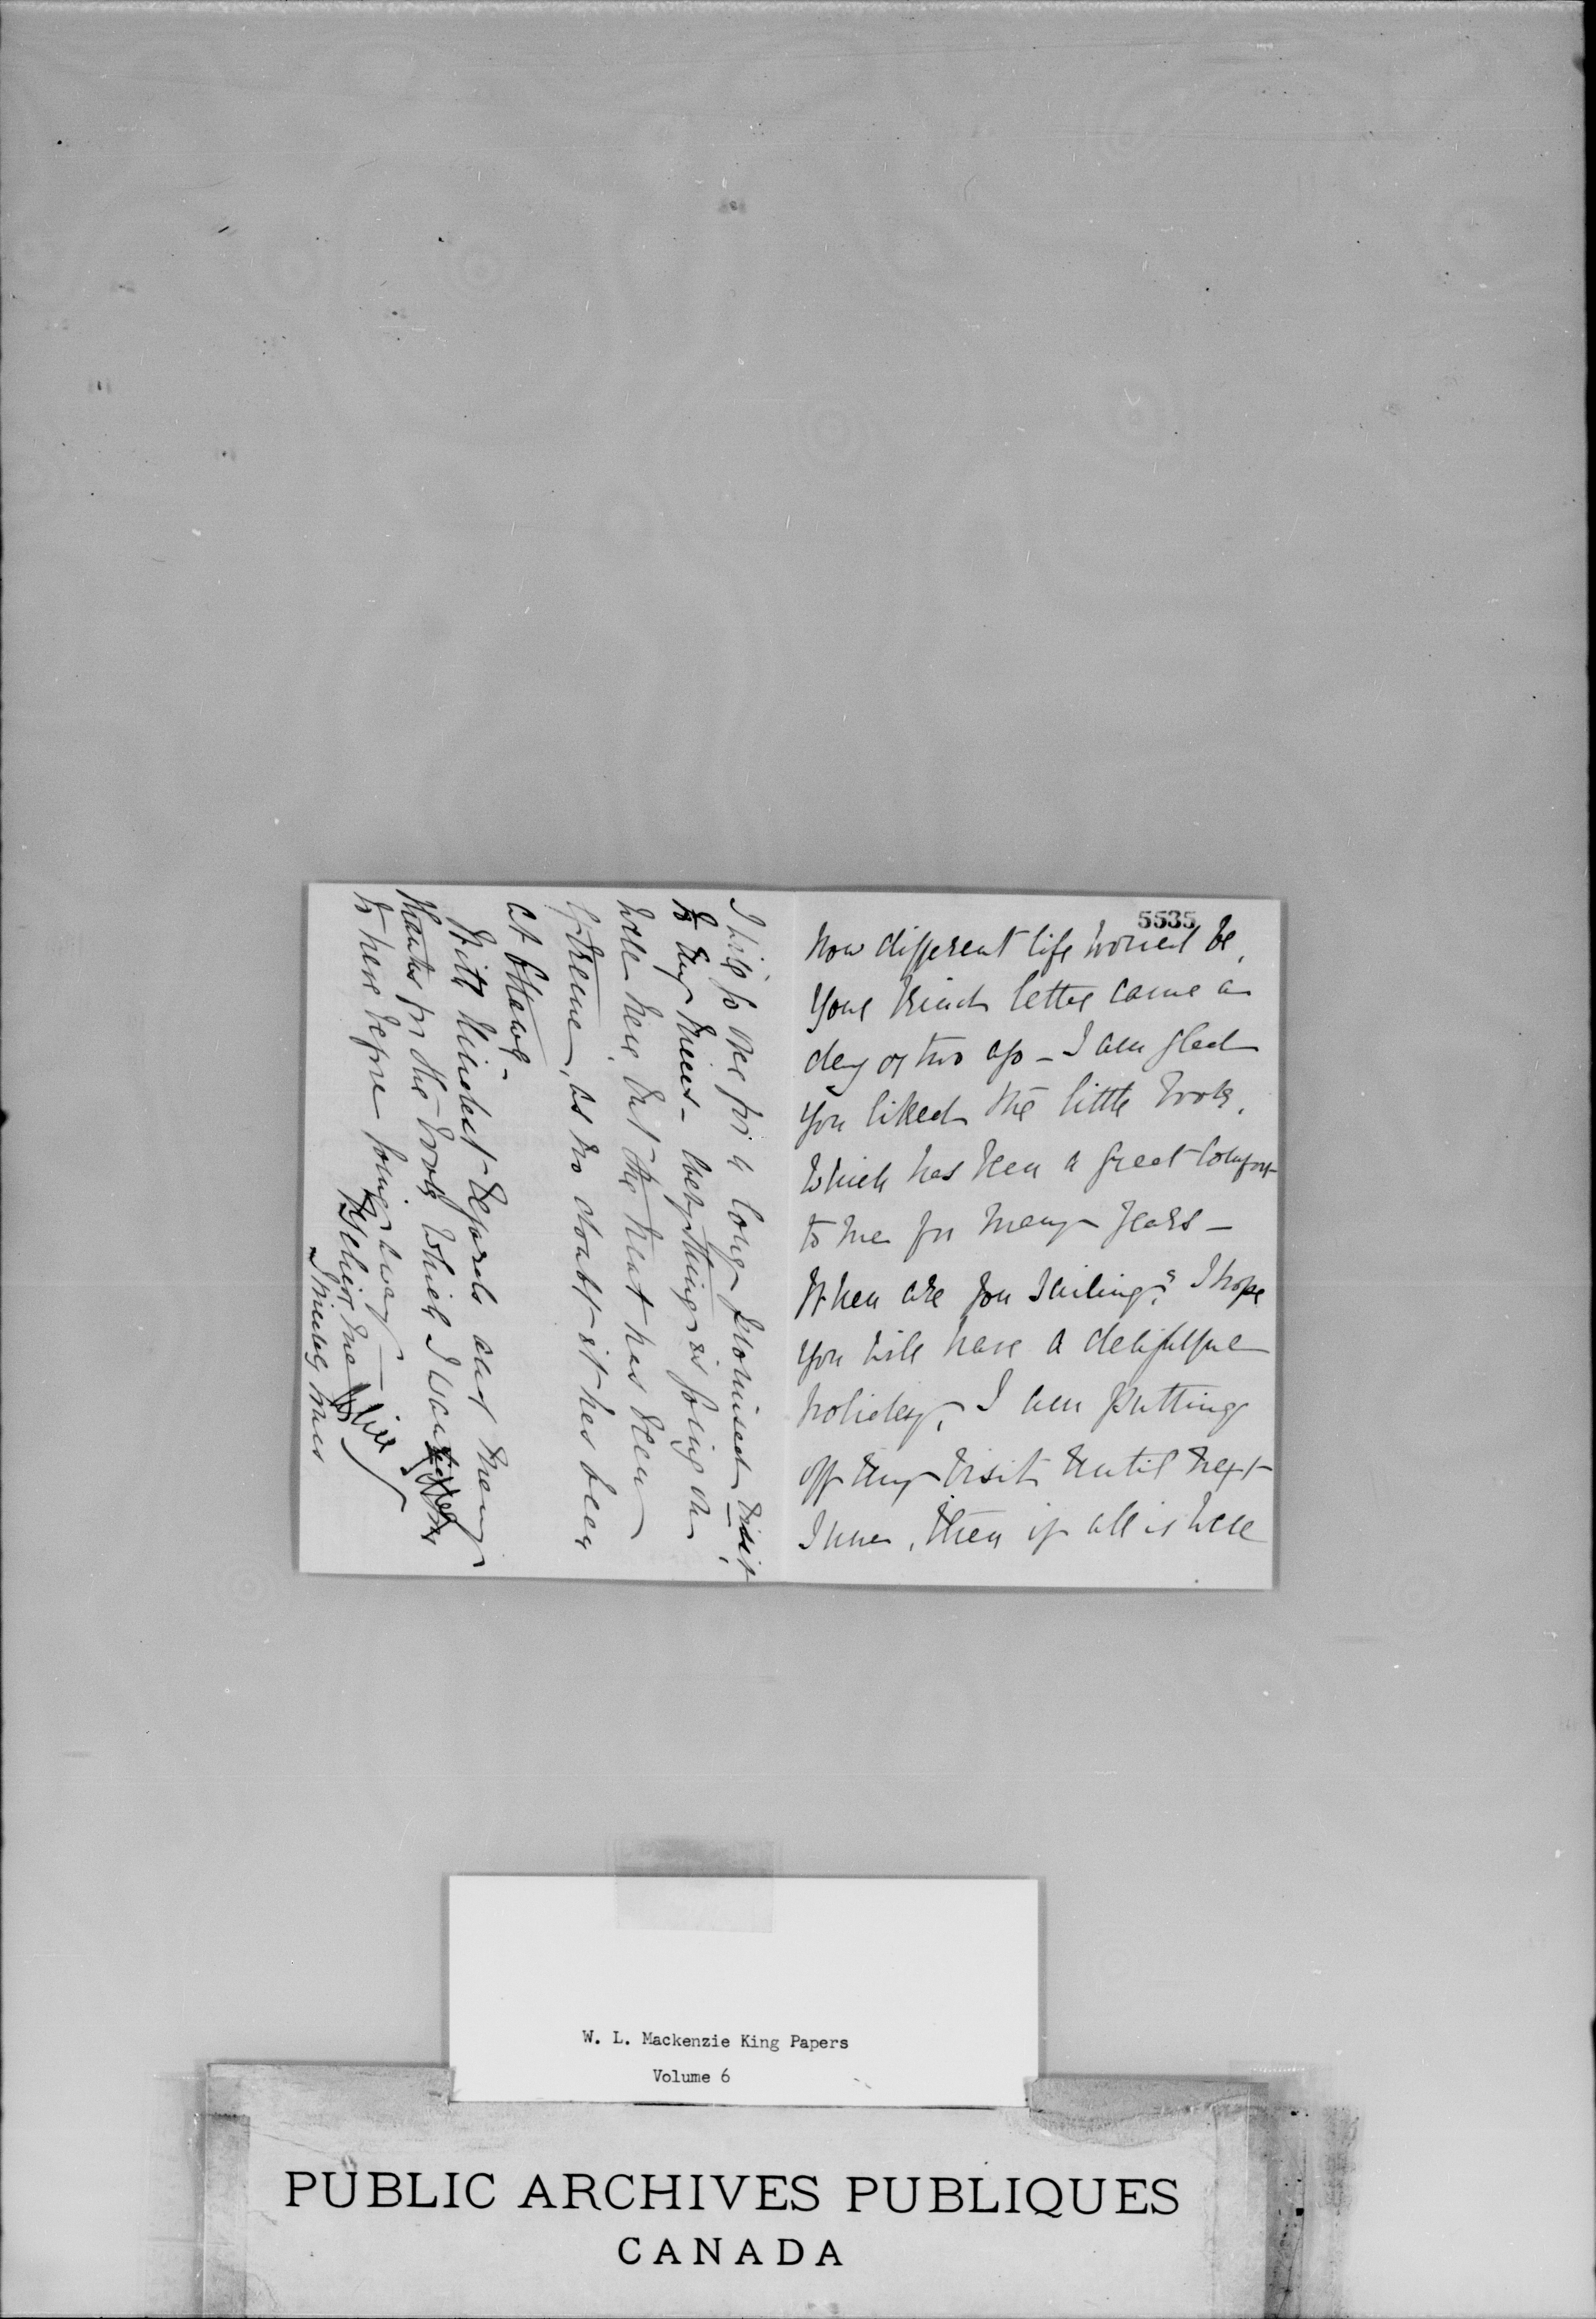 5535
how different life would be,
Your kind letter came a
day or two ago - I am glad
you liked the little book,
which has been a great comfort
to me for many years -
When are you sailing? I hope
you will have a delightful
holiday, I am putting
off my visit until next
June, then if all is well
I will go over for a long promised visit,
to my nieces - everything is going on
well here, but the heat has been
extreme, as no doubt it has been
at Ottawa -
With kindest regards and many
thanks for the book which I wanted
to have before going away -
Believe me
Sincerely yours
W. L. Mackenzie King Papers
Volume 6
PUBLIC ARCHIVES PUBLIQUES
CANADA